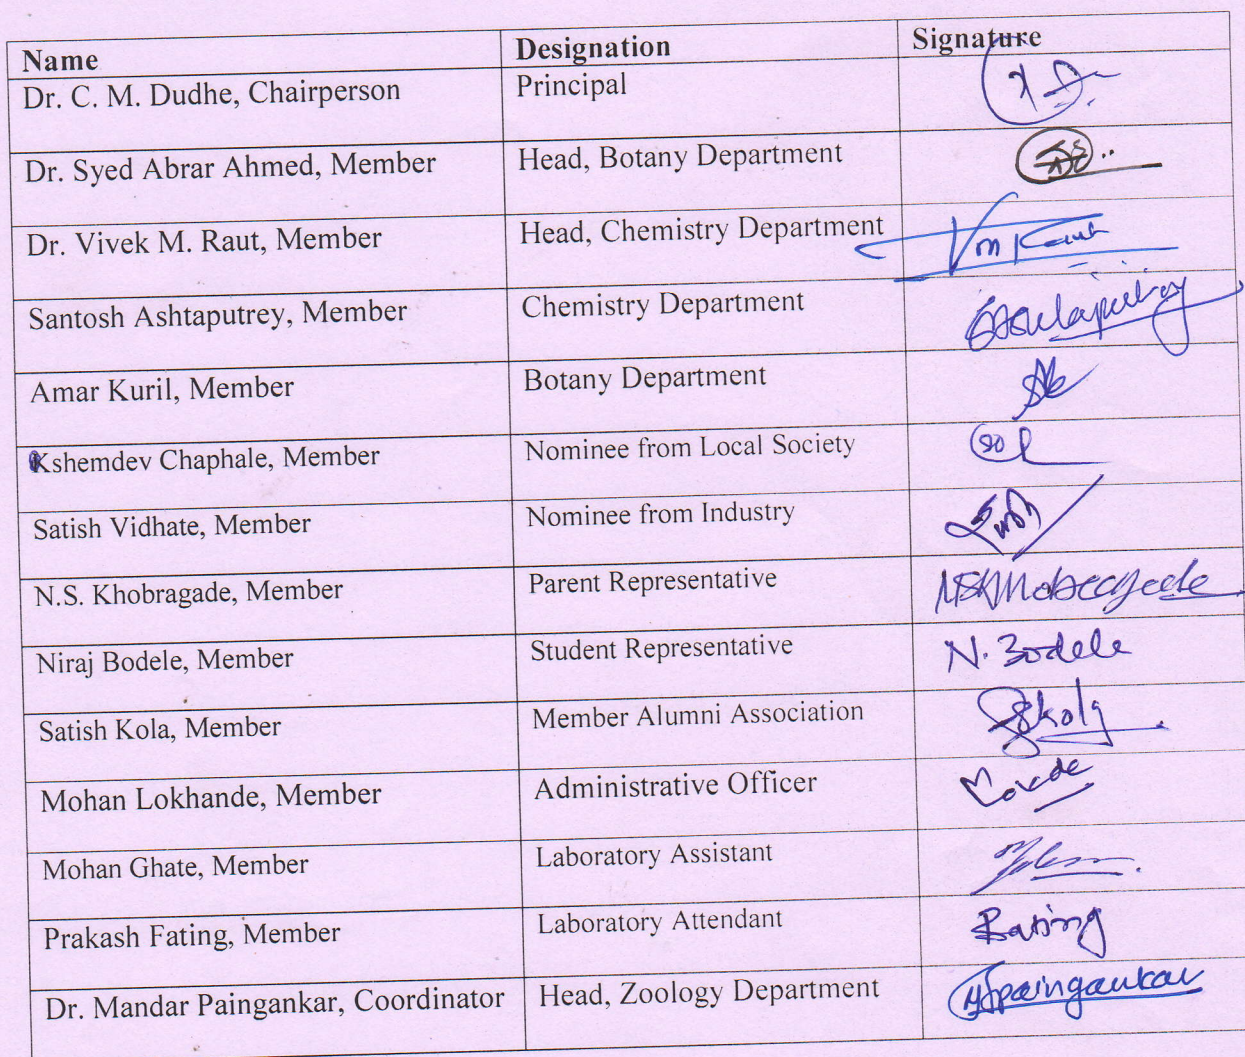 Name Designation Signature
Dr. C. M. Dudhe, Chairperson Principal
Dr. Syed Abrar Ahmed, Member Head, Botany Department
Dr. Vivek M. Raut, Member Head, Chemistry Department
Santosh Ashtaputrey, Member Chemistry Department
Amar Kuril, Member Botany Department
Kshemdev Chaphale, Member Nominee from Local Society
Satish Vidhate, Member Nominee from Industry
N.S. Khobragade, Member Parent Representative
Niraj Bodele, Member Student Representative N. Bodele
Satish Kola, Member Member Alumni Association
Mohan Lokhande, Member Administrative Officer
Mohan Ghate, Member Laboratory Assistant
Prakash Fating, Member Laboratory Attendant
Dr. Mandar Paingankar, Coordinator Head, Zoology Department